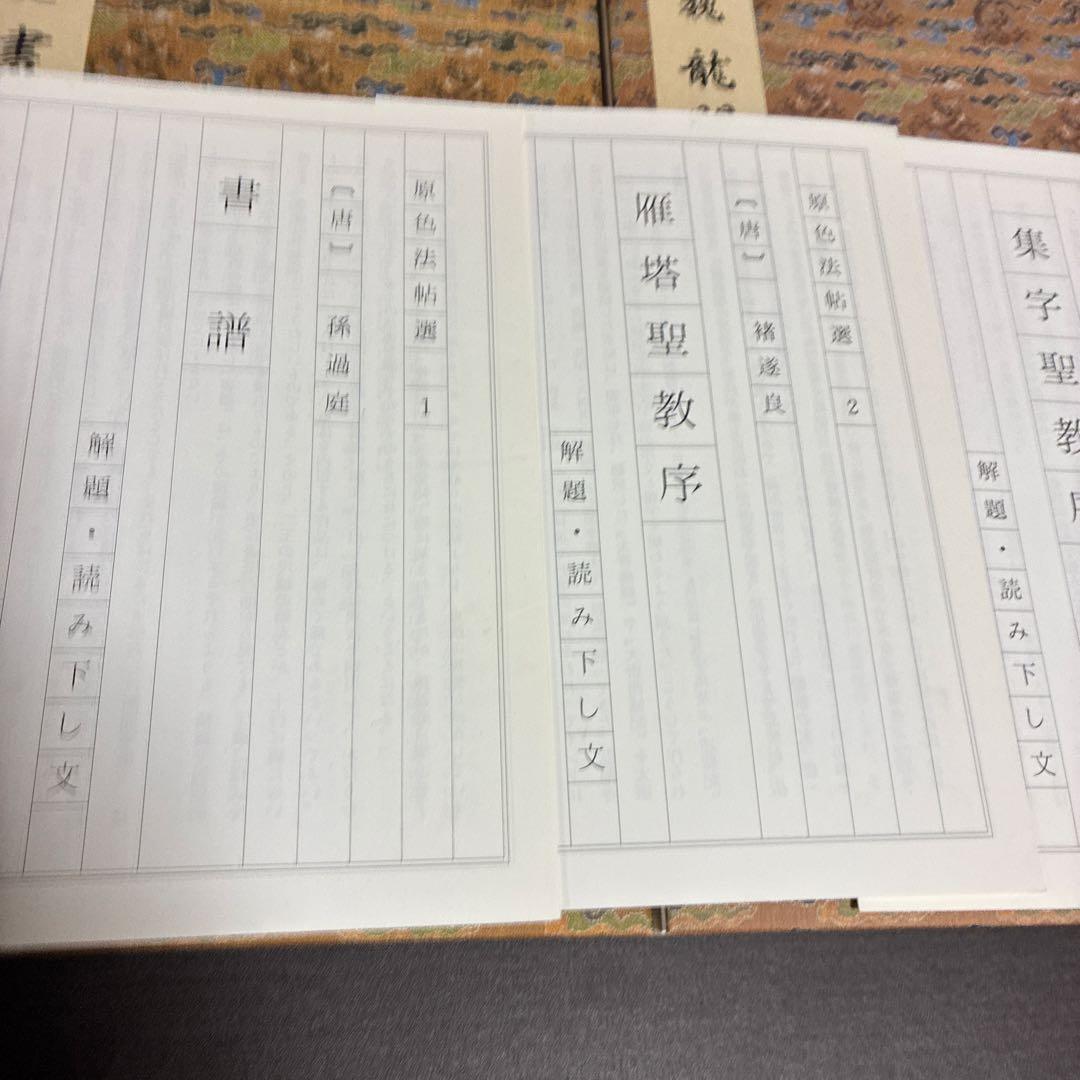 書
龍
原色法帖選 1
〔唐〕 孫過庭
書譜
解題・読み下し文
原色法帖選 2
〔唐〕 褚遂良
雁塔聖教序
解題・読み下し文
集字聖教序
解題・読み下し文